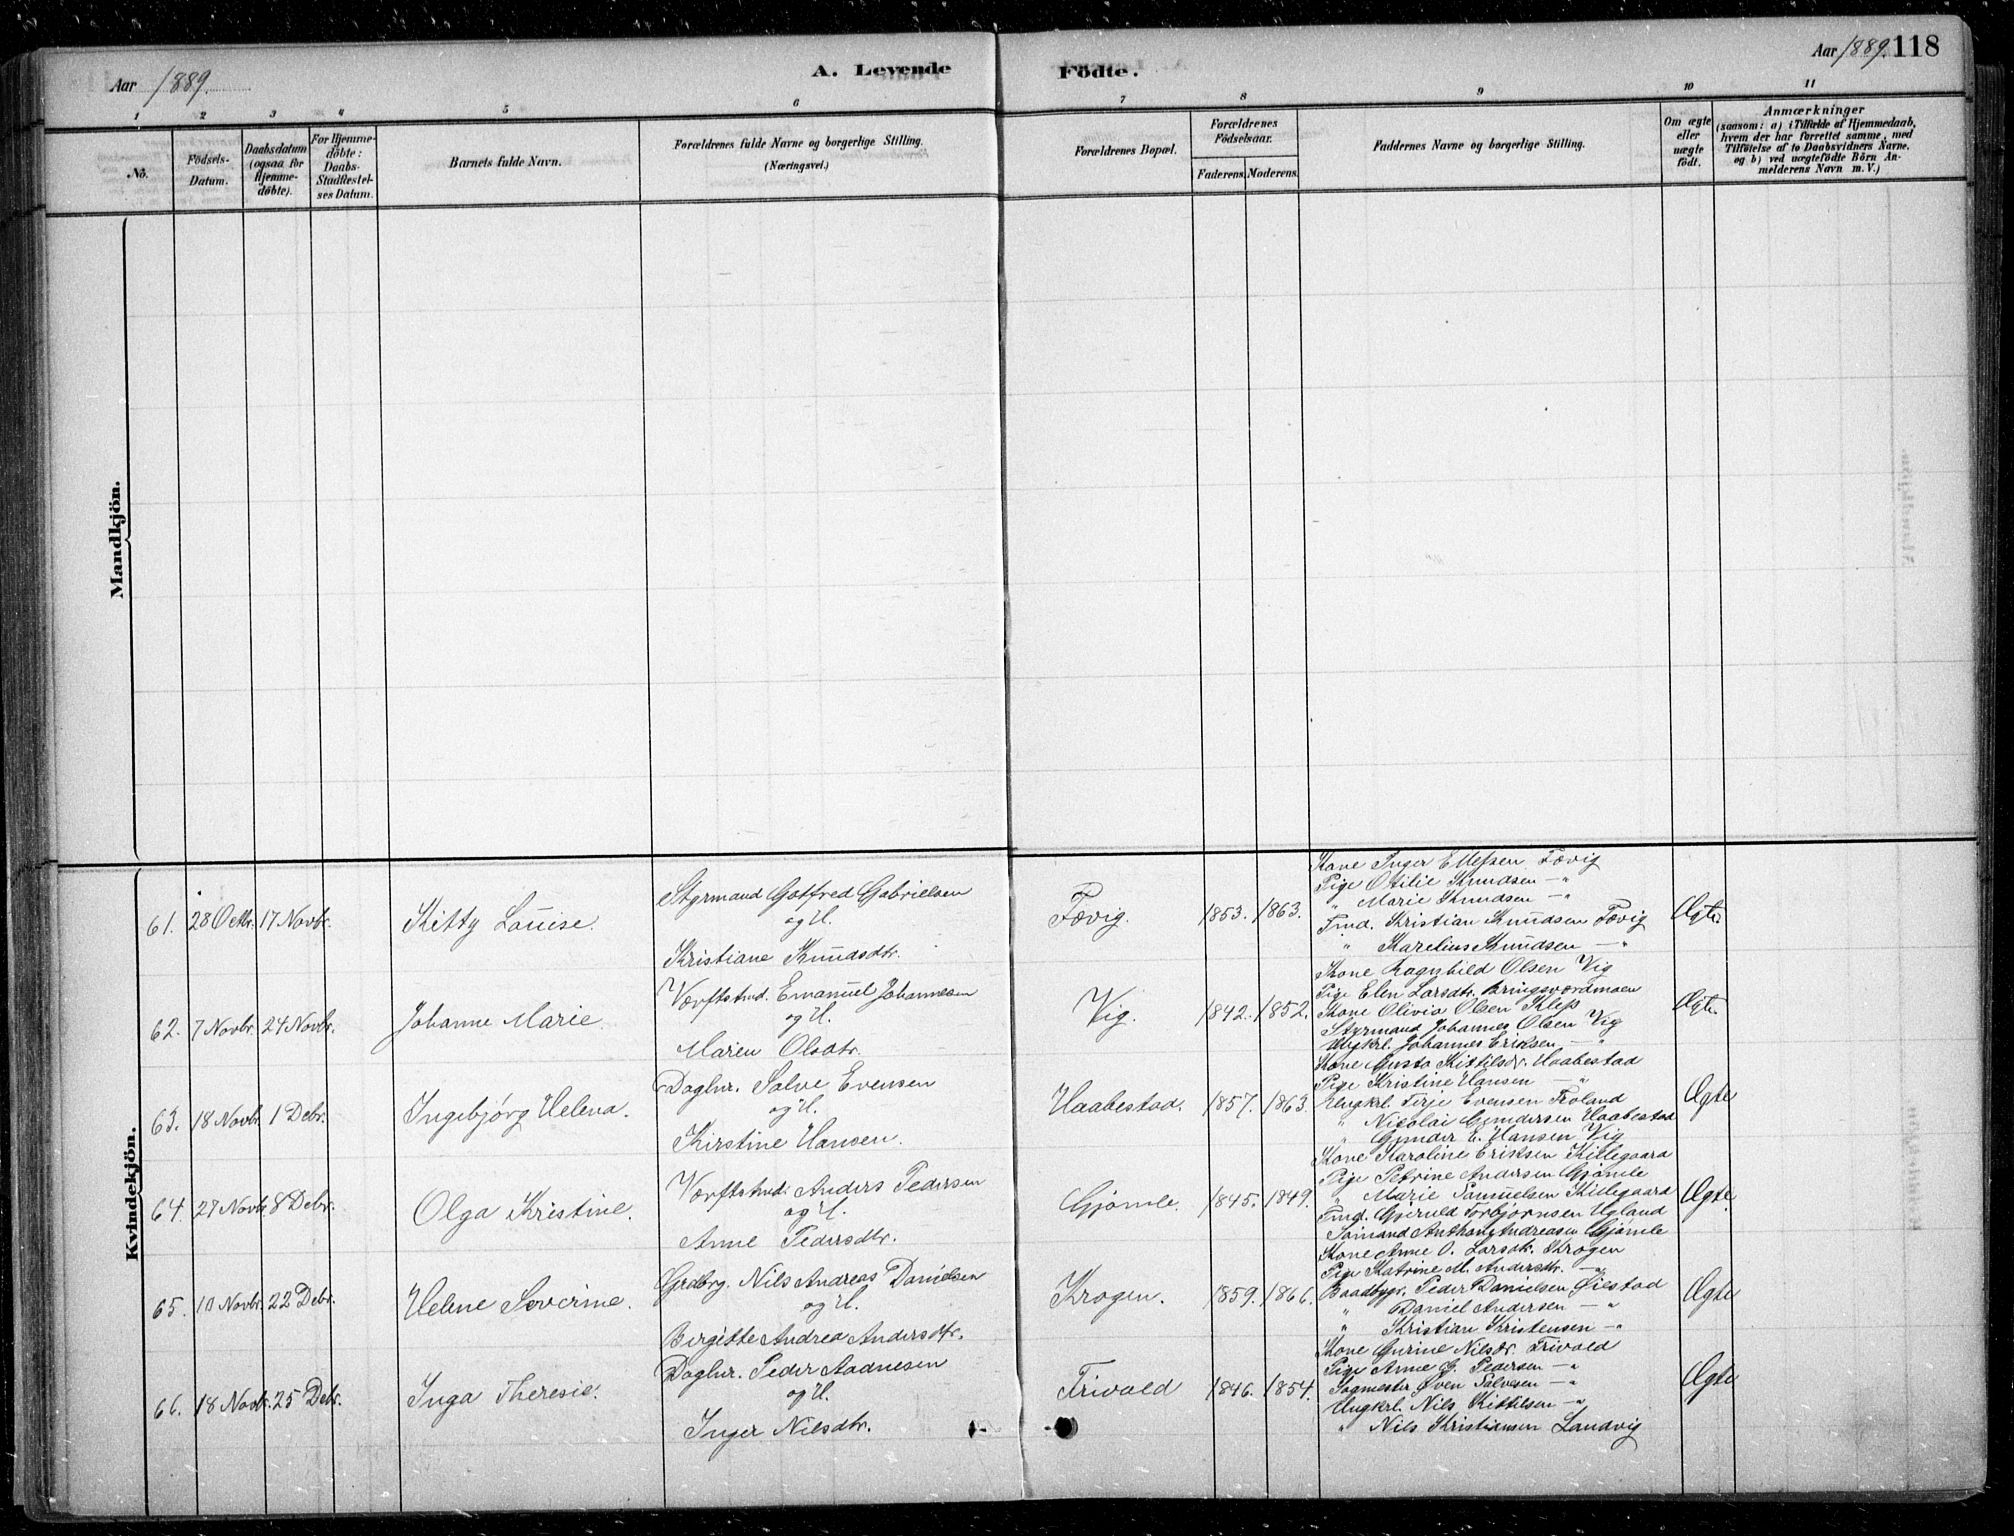 Aar 1889.
A. Levende
Födte.
Aar 1889. 118
1 2 3 4 5 6 7 8 9 10 11
No.
Födsels-
Datum.
Daabsdatum
(ogsaa for
Hjemme-
döbte).
For Hjemme-
döbte:
Daabs-
Stadfæstel-
ses Datum.
Barnets fulde Navn.
Forældrenes fulde Navne og borgerlige Stilling.
(Næringsvei.)
Forældrenes Bopæl.
Forældrenes
Födselsaar.
Faderens. Moderens.
Faddernes Navne og borgerlige Stilling.
Om ægte
eller
uægte
födt.
Anmærkninger
(saasom: a) i Tilfælde af Hjemmedaab,
hvem der har forrettet samme, med
Tilföielse af to Daabsvidners Navne.
og b) ved uægtefödte Börn An-
melderens Navn m. V.)
Mandkjön.
Kvindekjön.
61. 28 Octbr. 17 Novbr.
Kitty Louise.
Styrmand Gotfred Gabrielsen
og H.
Kristiane Knudsdtr.
Fævig.
1853. 1863.
Kone Inger Ellefsen Fævig
Pige Otilie Knudsen — "
" Marie Knudsen — "
Tmd. Kristian Knudsen Fævig
" Karelius Knudsen — "
Ægte.
62. 7 Novbr. 24 Novbr.
Johanne Marie
Værftstmd. Emanuel Johannesen
og H.
Maren Olsdtr.
Vig.
1842. 1852.
Kone Ragnhild Olsen Vig
Pige Elen Larsdtr. Bringsværdmoen
Kone Olivia Olsen Klep
Styrmand Johannes Olsen Vig
Ungkrl. Johannes Eriksen — "
Ægte.
63. 18 Novbr. 1 Debr.
Ingebjørg Helena.
Daglnr. Salve Evensen
og H.
Kirstine Hansen.
Haabestad.
1857. 1863.
Kone Gusta Kittilsdr. Haabestad
Pige Kristine Hansen — "
Ungkrl. Terje Evensen Froland
" Nicolai Gundersen Haabestad
" Gunder E. Hansen Vig
Ægte
64. 27 Novbr. 8 Debr.
Olga Kristine.
Værftstmd. Anders Pedersen
og H.
Anne Pedersdtr.
Gjømle.
1845. 1849.
Kone Karoline Eriksen Killegaard
Pige Petrine Andersen Gjømle
" Marie Samuelsen Killegaard
Tmd. Gjeruld Torbjørnsen Ugland
Sømand Anthon Andreasen Gjømle
Ægte.
65. 10 Novbr. 22 Debr.
Helene Severine.
Grdbrg. Nils Andreas Danielsen
og H.
Birgitte Andrea Andersdtr.
Krogen.
1859. 1866.
Kone Anne O. Larsdtr. Krogen
Pige Katrine M. Andersdtr. — "
Baadbygr. Peder Danielsen Øiestad
" Daniel Andersen — "
" Kristian Kristensen — "
Ægte
66. 18 Novbr. 25 Debr.
Inga Theresie.
Daglnr. Peder Aadnesen
og H.
Inger Nilsdtr.
Trivold
1846. 1854.
Kone Gurine Nilsdtr. Trivold
Pige Anne G. Pedersen — "
Sagmester Øven Salvesen — "
Ungkrl. Nils Kittilsen — "
" Nils Kristiansen Landvig
Ægte